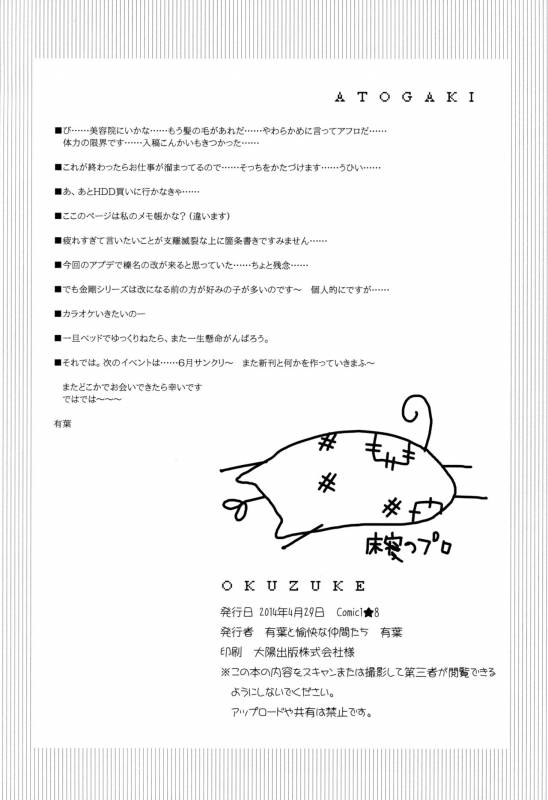 ATOGAKI
■び……美容院にいかな……もう髪の毛があれだ……やわらかめに言ってアフロだ……
体力の限界です……入稿こんかいもきつかった……
■これが終わったらお仕事が溜まってるので……そっちをかたづけます……うひい……
■あ、あとHDD買いに行かなきゃ……
■ここのページは私のメモ帳かな？(違います)
■疲れすぎて言いたいことが支離滅裂な上に箇条書きですみません……
■今回のアプデで榛名の改が来ると思っていた……ちょと残念……
■でも金剛シリーズは改になる前の方が好みの子が多いのです～　個人的にですが……
■カラオケいきたいのー
■一旦ベッドでゆっくりねたら、また一生懸命がんばろう。
■それでは。次のイベントは……6月サンクリ～　また新刊と何かを作っていきまふ～
またどこかでお会いできたら幸いです
ではでは～～～
有葉
床寝のプロ
OKUZUKE
発行日 2014年4月29日　Comic1★8
発行者　有葉と愉快な仲間たち　有葉
印刷　大陽出版株式会社様
※この本の内容をスキャンまたは撮影して第三者が閲覧できる
ようにしないでください。
アップロードや共有は禁止です。